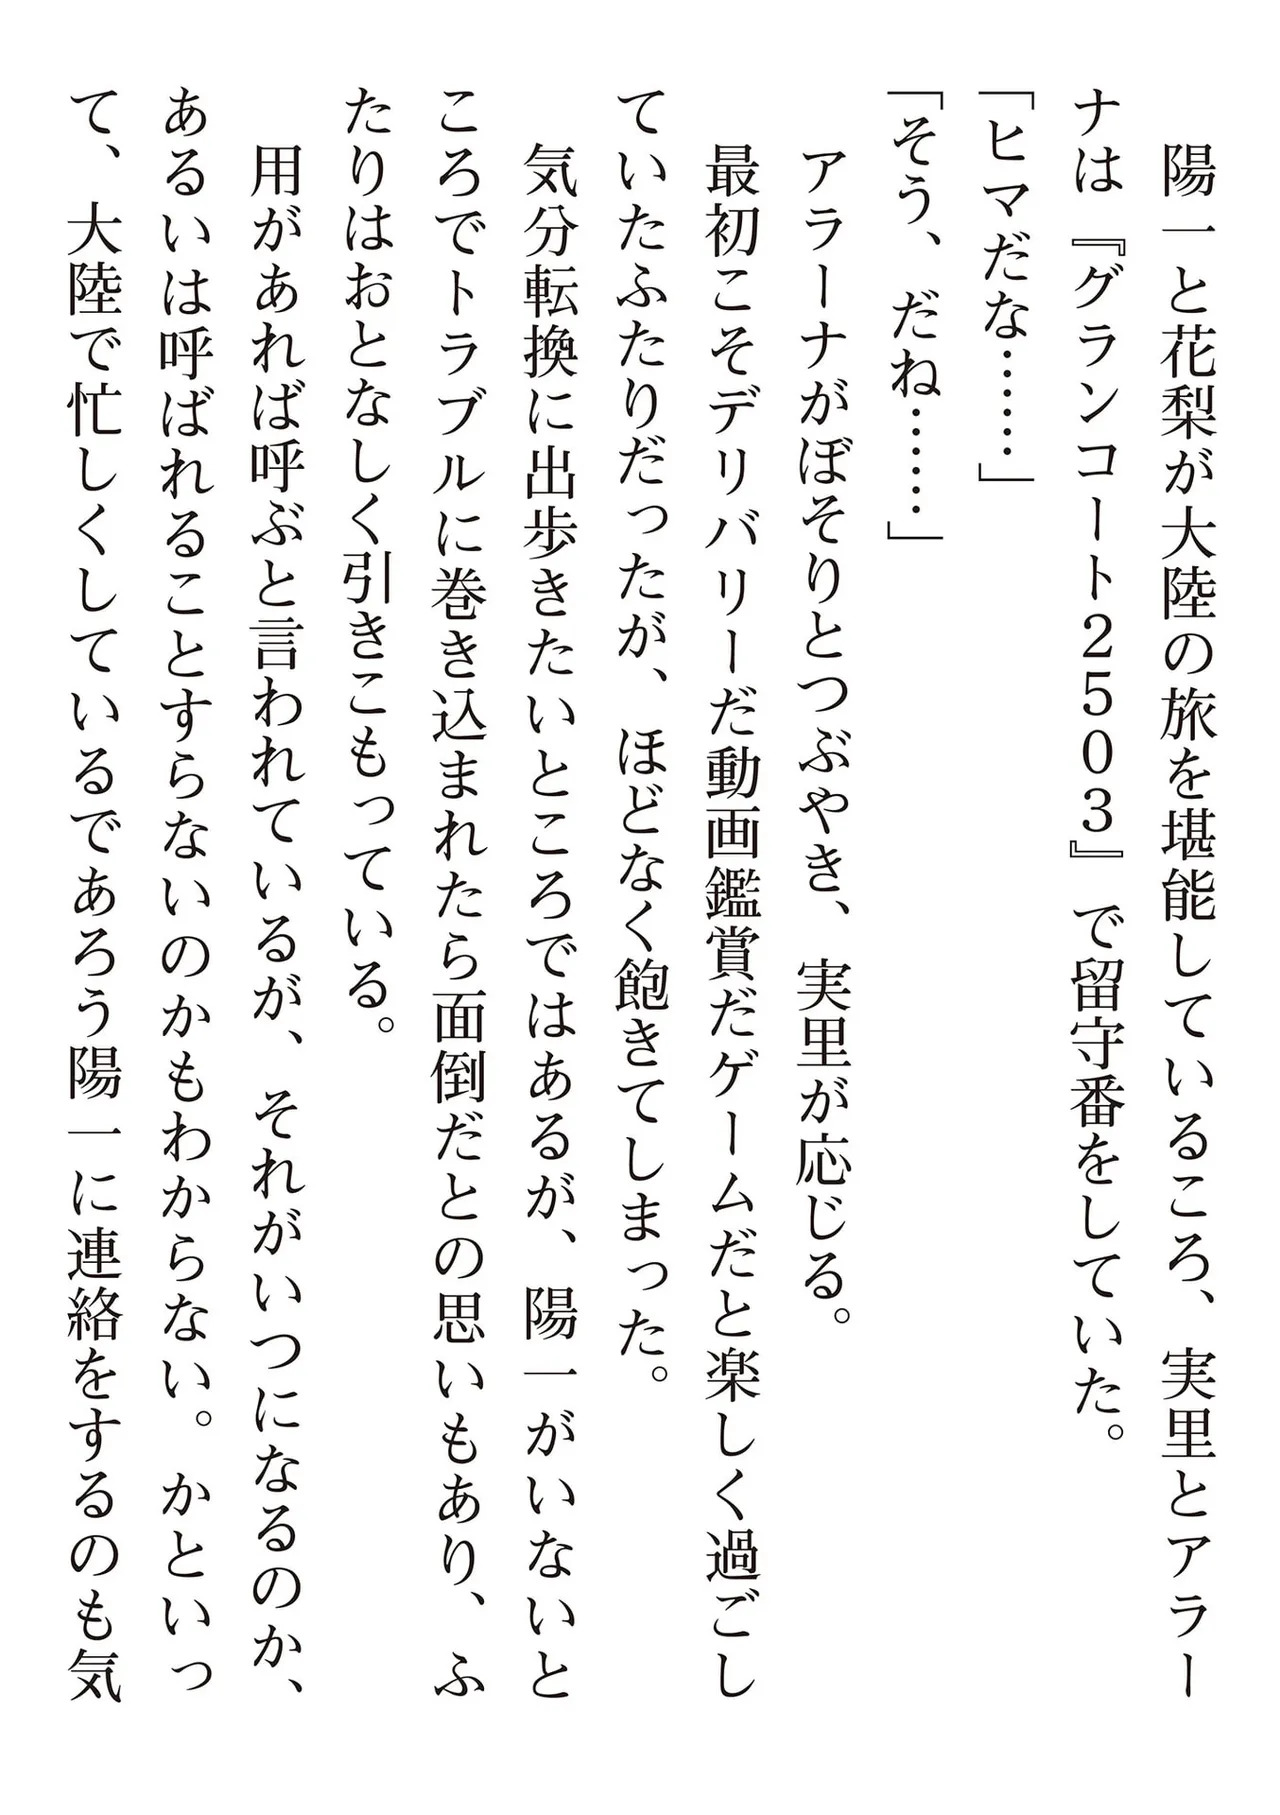 陽一と花梨が大陸の旅を堪能しているころ、実里とアラー
ナは『グランコート２５０３』で留守番をしていた。
「ヒマだな……」
「そう、だね……」
アラーナがぼそりとつぶやき、実里が応じる。
最初こそデリバリーだ動画鑑賞だゲームだと楽しく過ごし
ていたふたりだったが、ほどなく飽きてしまった。
気分転換に出歩きたいところではあるが、陽一がいないと
ころでトラブルに巻き込まれたら面倒だとの思いもあり、ふ
たりはおとなしく引きこもっている。
用があれば呼ぶと言われているが、それがいつになるのか、
あるいは呼ばれることすらないのかもわからない。かといっ
て、大陸で忙しくしているであろう陽一に連絡をするのも気